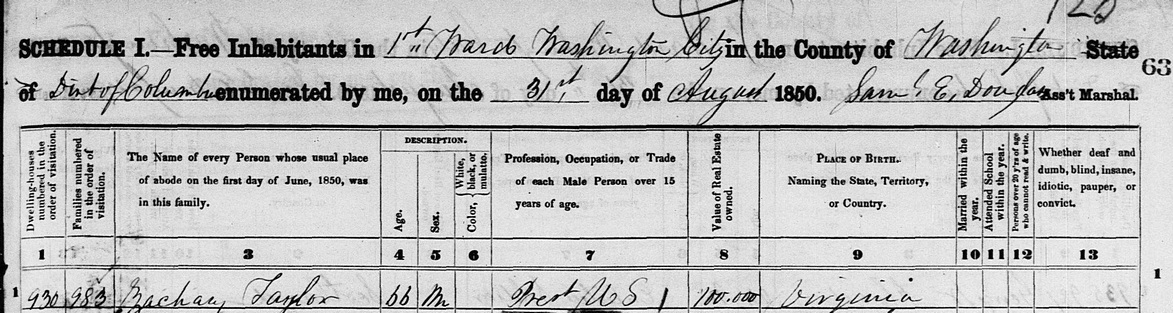 120
SCHEDULE I.—Free Inhabitants in 1st Ward Washington City in the County of Washington State
63
of Dist of Columbia enumerated by me, on the 31st day of August 1850. Saml E. Douglass Ass't Marshal.
Dwelling-houses numbered in the order of visitation.
Families numbered in the order of visitation.
The Name of every Person whose usual place
of abode on the first day of June, 1850, was
in this family.
DESCRIPTION.
Age.
Sex.
Color, { White, black, or mulatto.
Profession, Occupation, or Trade
of each Male Person over 15
years of age.
Value of Real Estate owned.
PLACE OF BIRTH.
Naming the State, Territory,
or Country.
Married within the year.
Attended School within the year.
Persons over 20 y'rs of age who cannot read & write.
Whether deaf and
dumb, blind, insane,
idiotic, pauper, or
convict.
1 2 3 4 5 6 7 8 9 10 11 12 13
1 930 983 Zachary Taylor 66 M Prest U S 100.000 Virginia 1